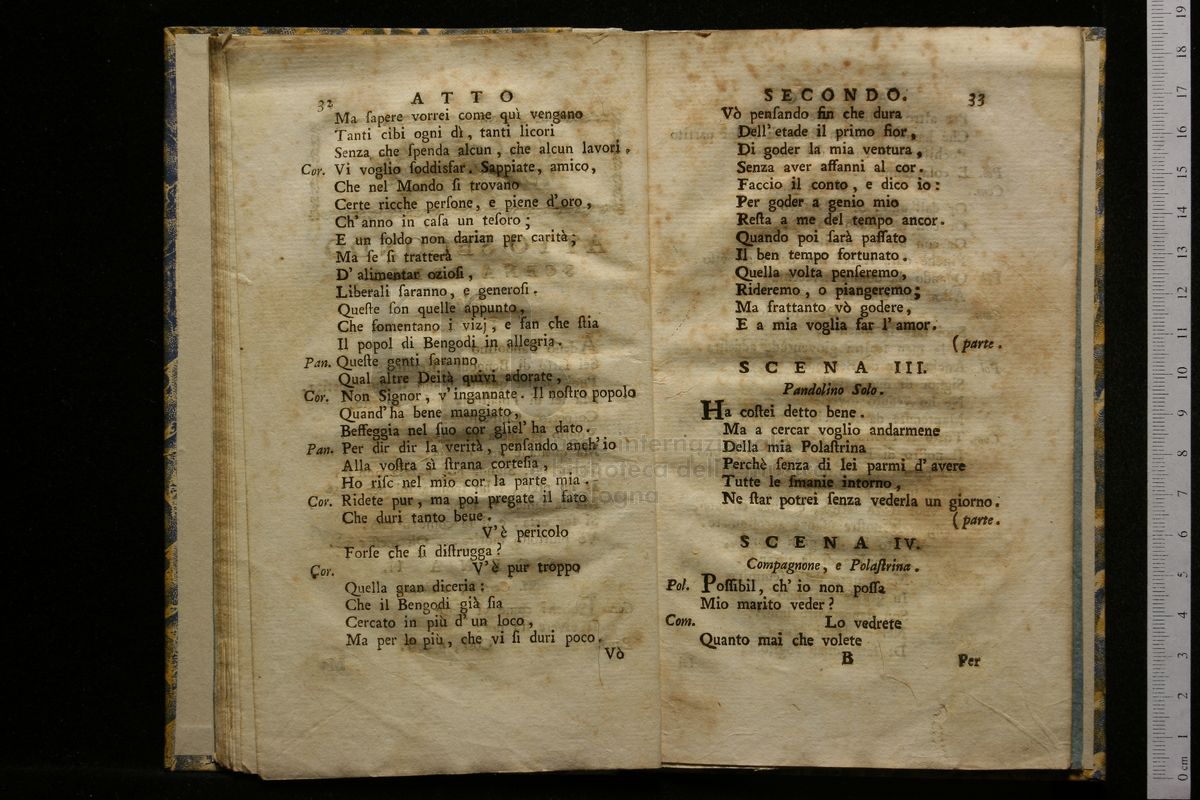 32 ATTO
Ma ſapere vorrei come quì vengano
Tanti cibi ogni dì, tanti licori
Senza che ſpenda alcun, che alcun lavori.
Cor. Vi voglio ſoddisfar. Sappiate, amico,
Che nel Mondo ſi trovano
Certe ricche perſone, e piene d'oro,
Ch'anno in caſa un teſoro;
E un ſoldo non darian per carità;
Ma ſe ſi tratterà
D'alimentar ozioſi,
Liberali ſaranno, e generoſi.
Queſte ſon quelle appunto,
Che fomentano i vizj, e fan che ſtia
Il popol di Bengodi in allegria.
Pan. Queſte genti ſaranno
Qual altre Deità quivi adorate,
Cor. Non Signor, v'ingannate. Il noſtro popolo
Quand'ha bene mangiato,
Beffeggia nel ſuo cor gliel'ha dato.
Pan. Per dir dir la verità, penſando anch'io
Alla voſtra sì ſtrana corteſia,
Ho riſc nel mio cor la parte mia.
Cor. Ridete pur, ma poi pregate il fato
Che duri tanto beue.
V'è pericolo
Forſe che ſi diſtrugga?
Cor. V'è pur troppo
Quella gran diceria:
Che il Bengodi già ſia
Cercato in più d'un loco,
Ma per lo più, che vi ſi duri poco.
Vò
SECONDO. 33
Vò penſando fin che dura
Dell'etade il primo fior,
Di goder la mia ventura,
Senza aver affanni al cor.
Faccio il conto, e dico io:
Per goder a genio mio
Reſta a me del tempo ancor.
Quando poi ſarà paſſato
Il ben tempo fortunato.
Quella volta penſeremo,
Rideremo, o piangeremo;
Ma frattanto vò godere,
E a mia voglia far l'amor.
(parte.
SCENA III.
Pandolino Solo.
Ha coſtei detto bene.
Ma a cercar voglio andarmene
Della mia Polaſtrina
Perchè ſenza di lei parmi d'avere
Tutte le ſmanie intorno,
Ne ſtar potrei ſenza vederla un giorno.
(parte.
SCENA IV.
Compagnone, e Polaſtrina.
Pol. Poſſibil, ch'io non poſſa
Mio marito veder?
Com. Lo vedrete
Quanto mai che volete
B Per